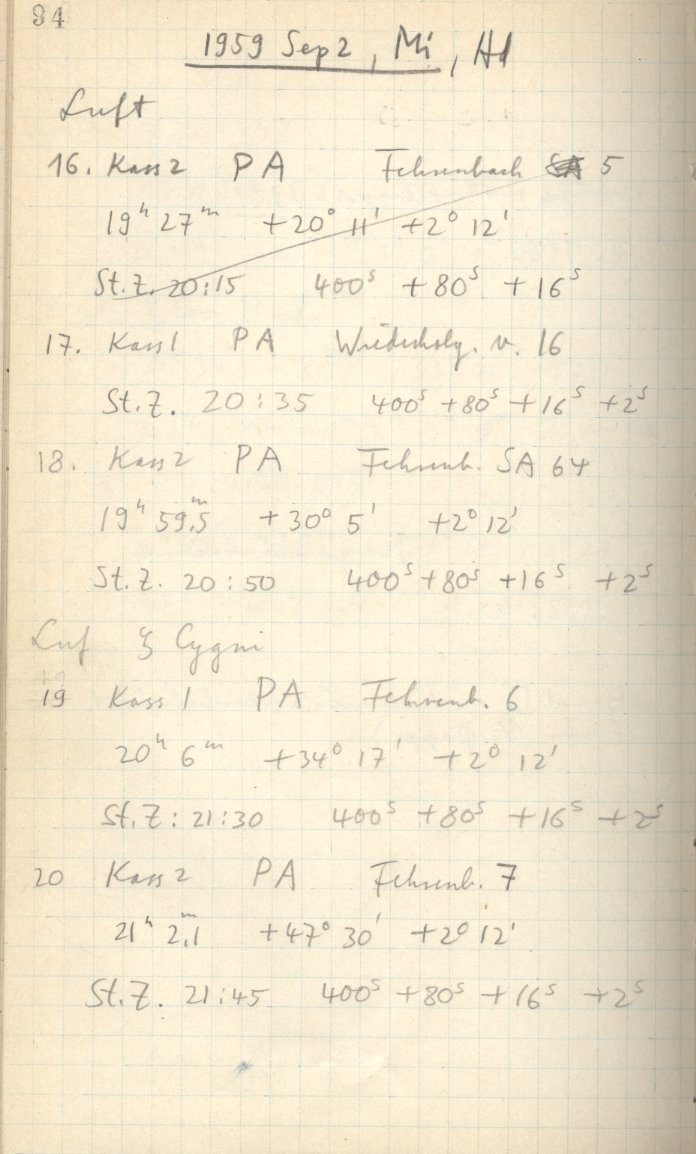 94
1959 Sep 2, Mi, Hd
Luft
16. Kass 2 PA Fehrenbach SA 5
19ʰ 27ᵐ +20° 11' +2° 12'
St.Z. 20:15 400ˢ +80ˢ +16ˢ
17. Kass 1 PA Wiederholg. v. 16
St.Z. 20:35 400ˢ +80ˢ +16ˢ +2ˢ
18. Kass 2 PA Fehrenb. SA 64
19ʰ 59ᵐ,5 +30° 5' +2° 12'
St.Z. 20:50 400ˢ +80ˢ +16ˢ +2ˢ
Luf ξ Cygni
19 Kass 1 PA Fehrenb. 6
20ʰ 6ᵐ +34° 17' +2° 12'
St.Z: 21:30 400ˢ +80ˢ +16ˢ +2ˢ
20 Kass 2 PA Fehrenb. 7
21ʰ 2ᵐ,1 +47° 30' +2° 12'
St.Z. 21:45 400ˢ +80ˢ +16ˢ +2ˢ